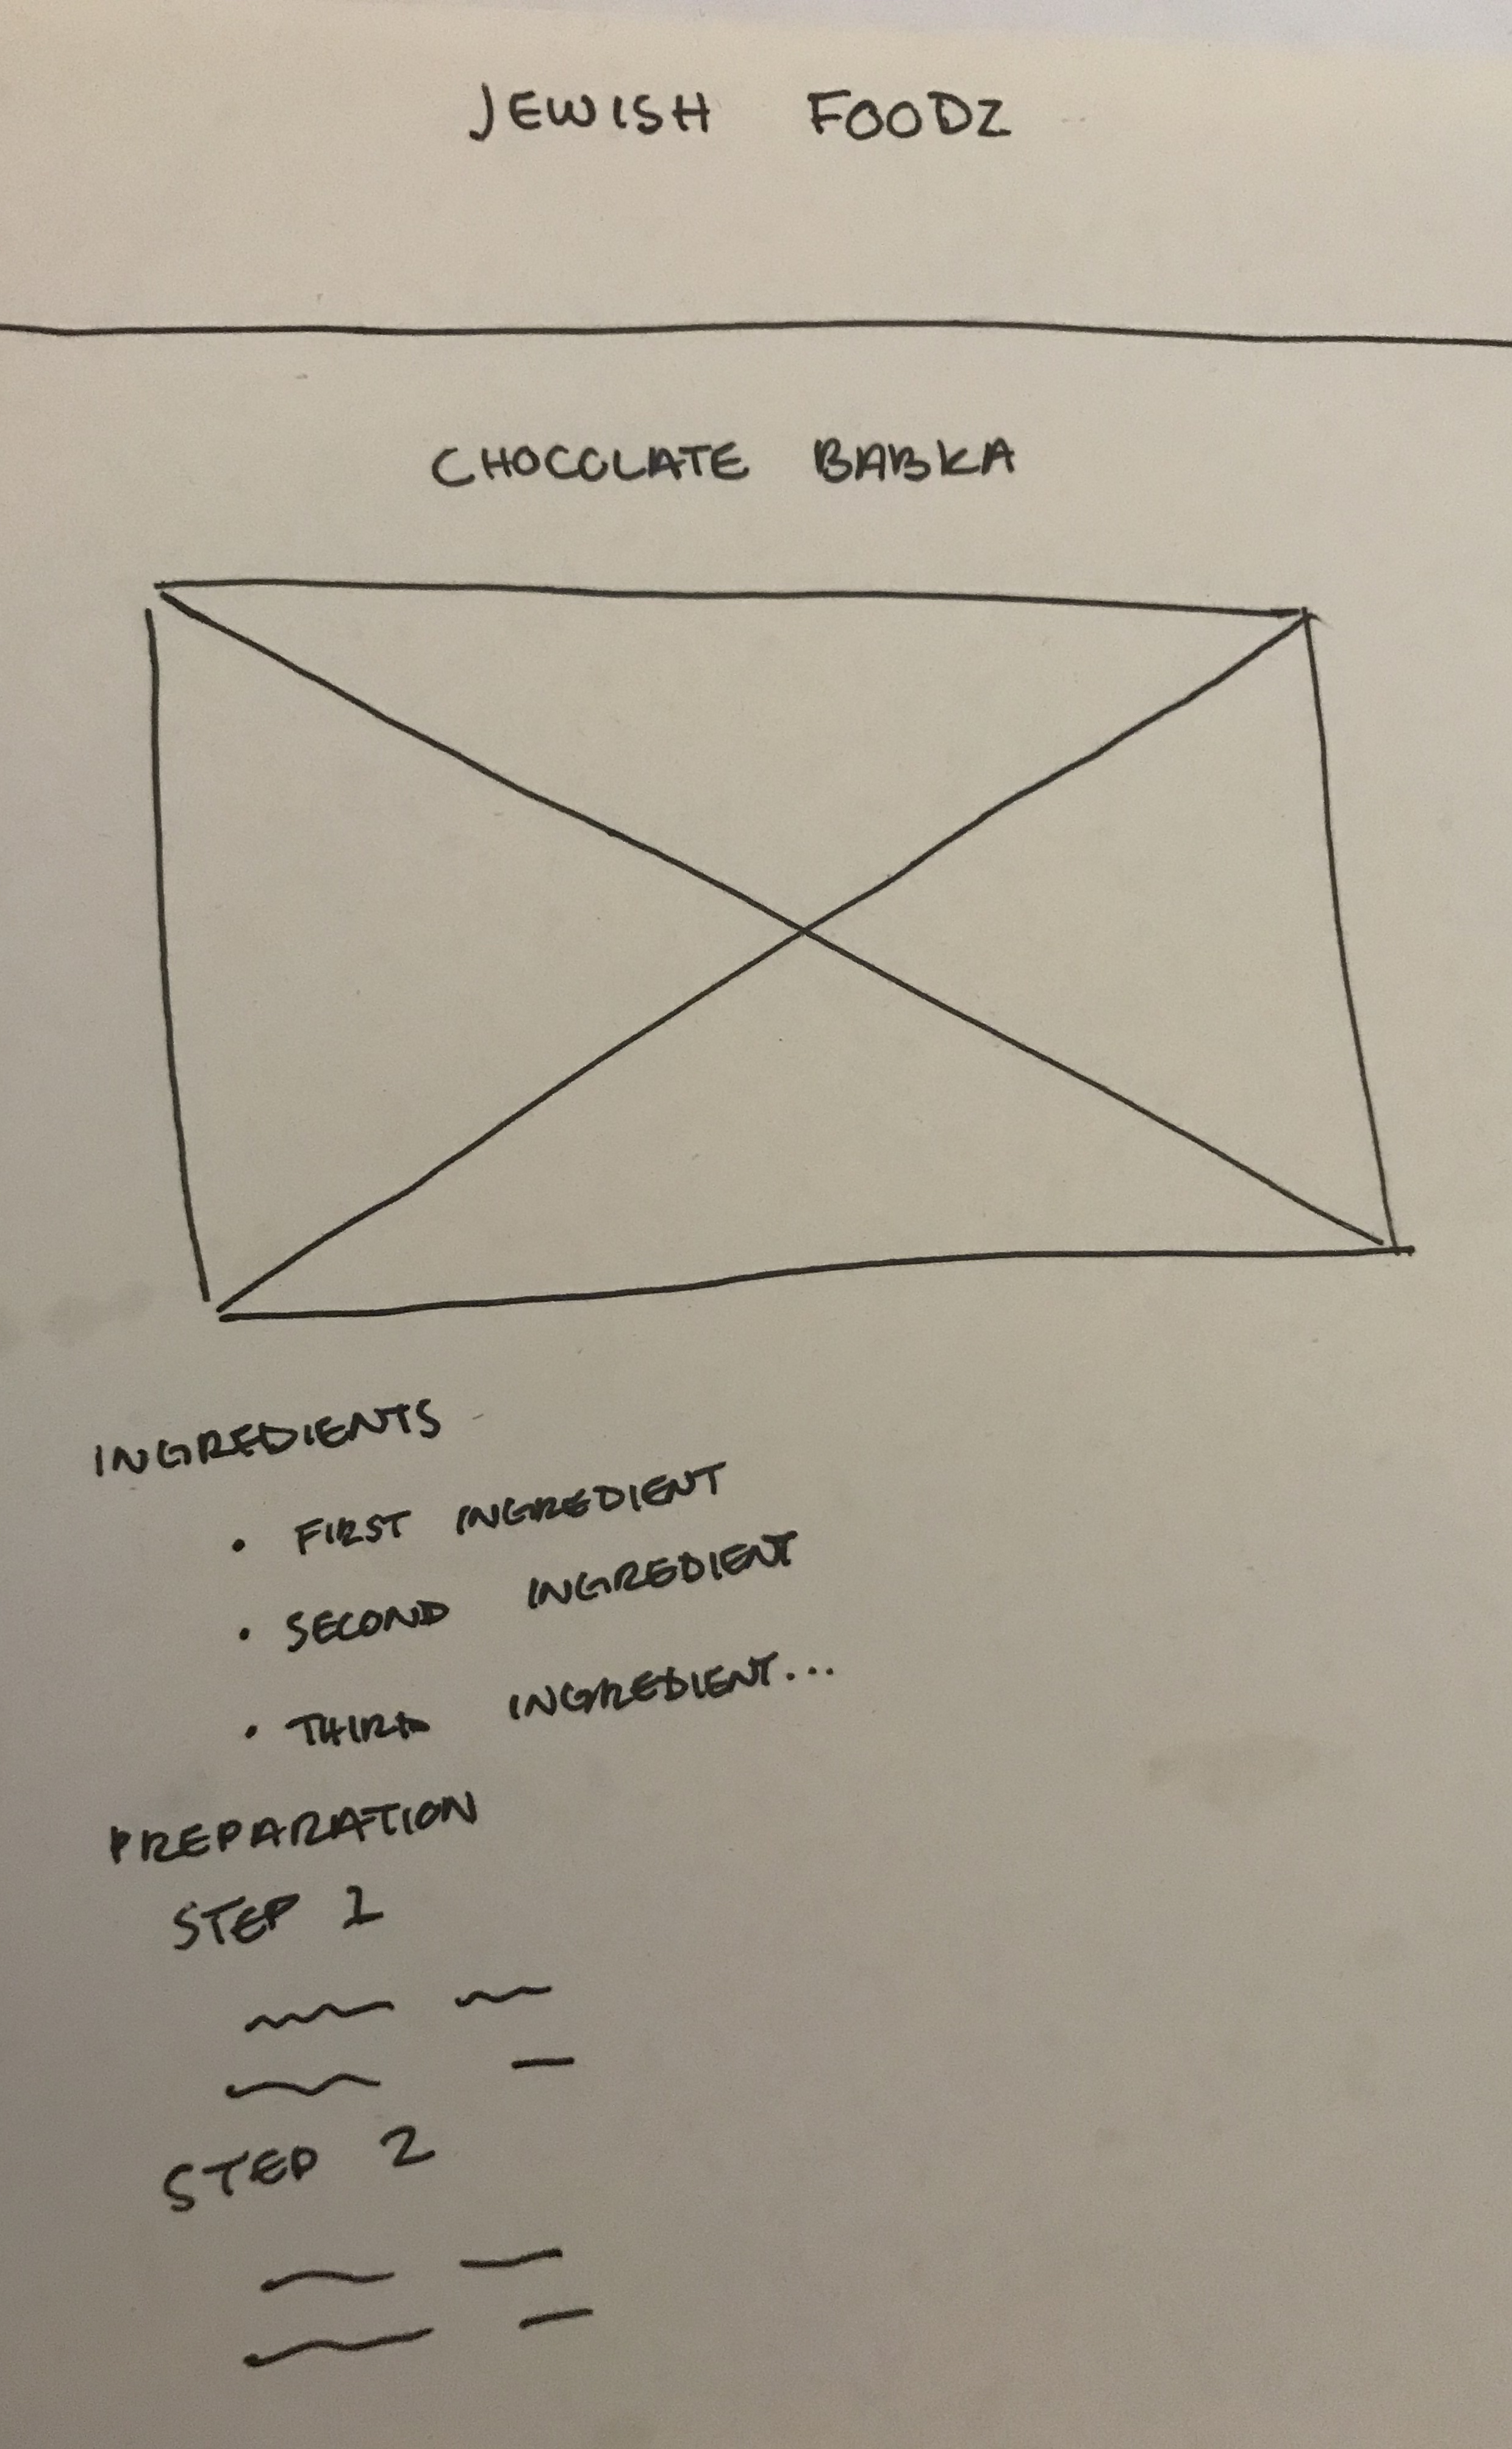 JEWISH FOODZ
CHOCOLATE BABKA
INGREDIENTS
• FIRST INGREDIENT
• SECOND INGREDIENT
• THIRD INGREDIENT...
PREPARATION
STEP 1
STEP 2